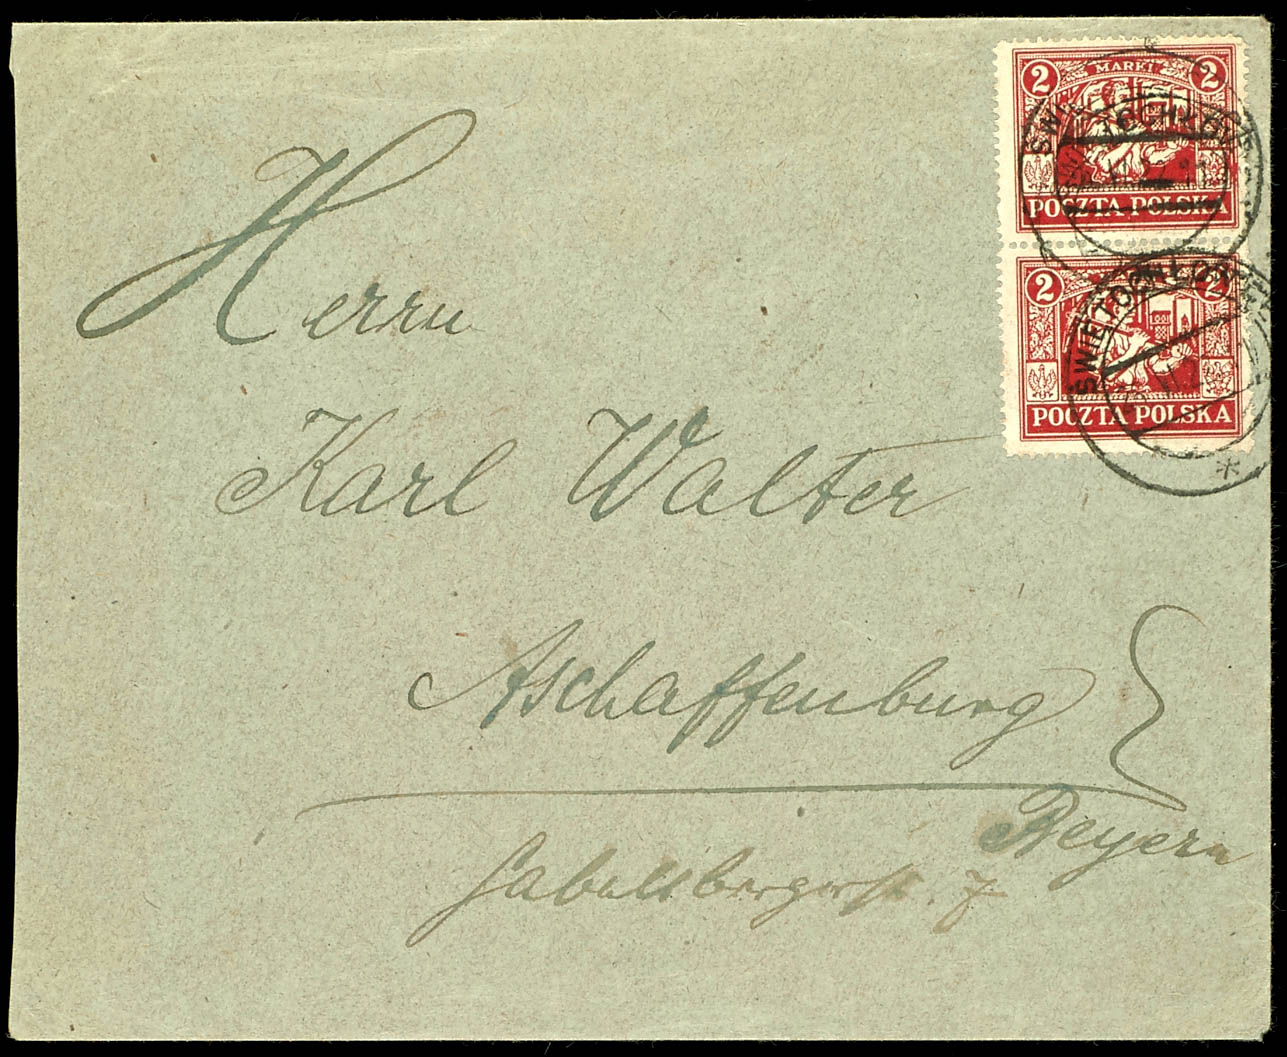 2 MARKI 2
POCZTA POLSKA
2 2
POCZTA POLSKA
ŚWIĘTOCHŁOWICE
Herrn
Karl Walter
Aschaffenburg
Beyern
Gabelsbergerstr. 7